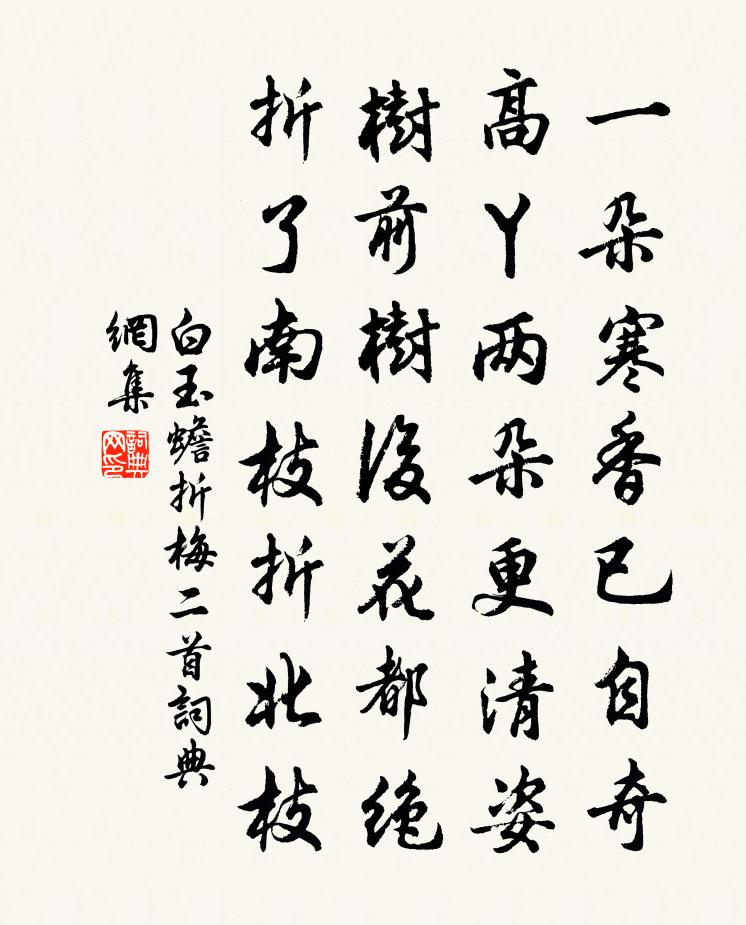 一朵寒香已自奇
高丫两朵更清姿
樹前樹後花都絶
折了南枝折北枝
白玉蟾折梅二首詞典
網集
詞典
网印